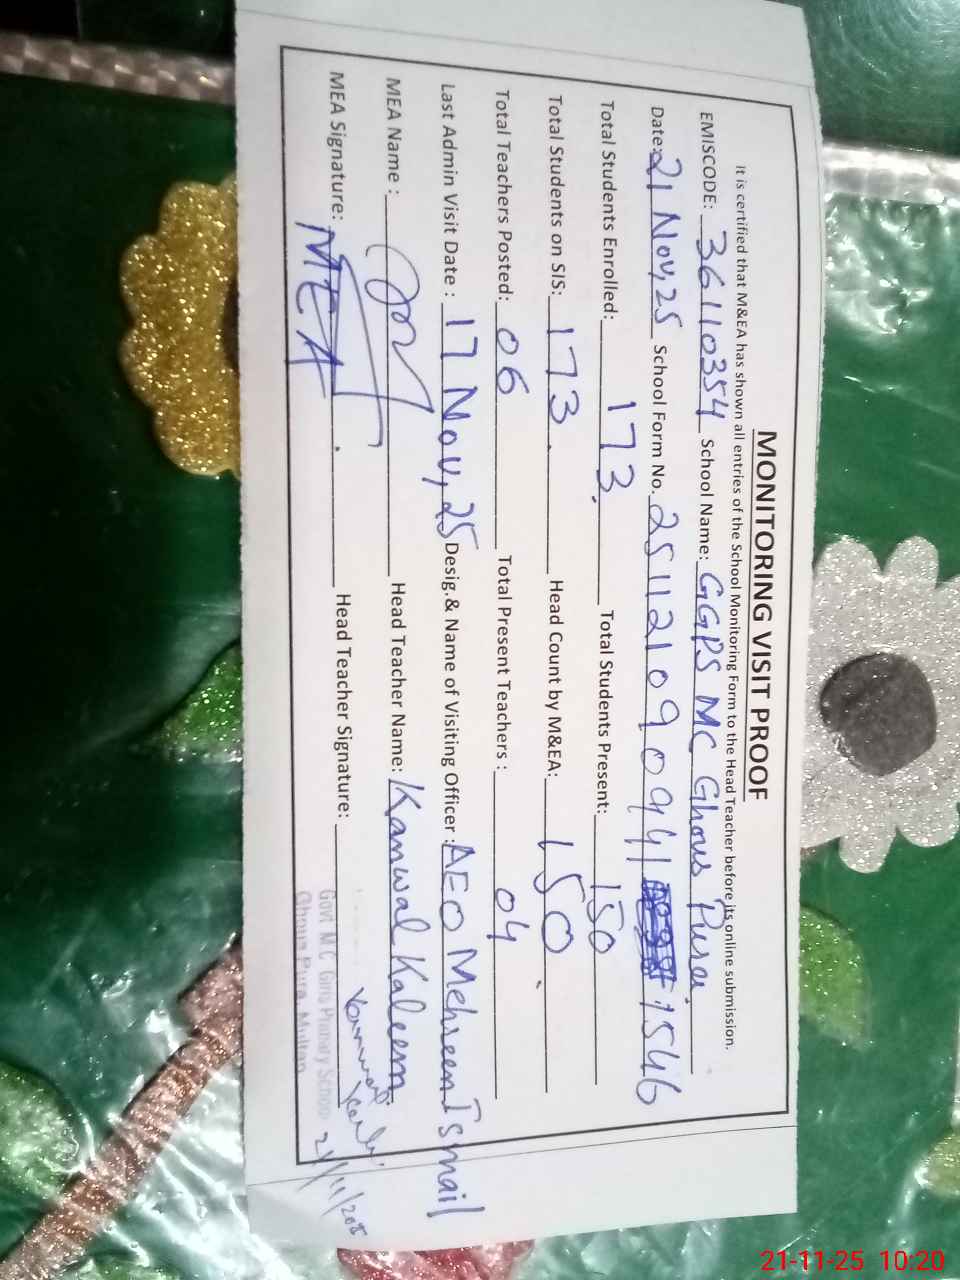 MONITORING VISIT PROOF
It is certified that M&EA has shown all entries of the School Monitoring Form to the Head Teacher before its online submission.
EMISCODE: 36110354 School Name: GGPS MC Ghous Pura.
Date: 21 Nov, 25 School Form No. 251121090941 1546
Total Students Enrolled: 173. Total Students Present: 150
Total Students on SIS: 173. Head Count by M&EA: 150.
Total Teachers Posted: 06 Total Present Teachers : 04
Last Admin Visit Date : 17 Nov, 25 Desig.& Name of Visiting Officer : AEO Mehreen Ismail
MEA Name : Head Teacher Name: Kanwal Kaleem.
MEA Signature: MEA . Head Teacher Signature:
Govt M.C Girls Primary School
Ghous Pura Multan
21-11-25 10:20